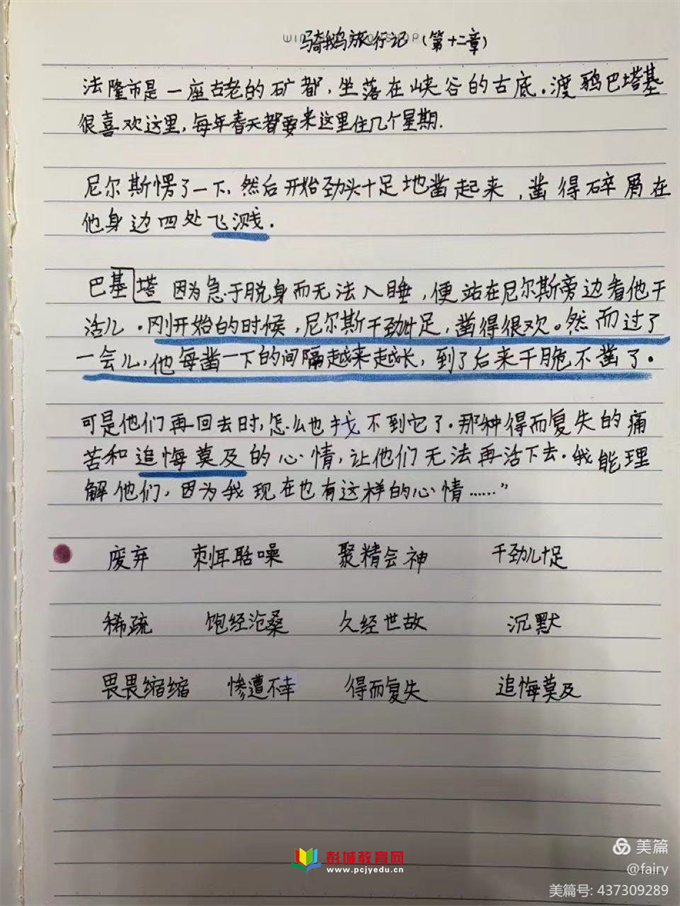 骑鹅旅行记(第十二章)
法隆市是一座古老的矿都,坐落在峡谷的古底。渡鸦巴塔基
很喜欢这里,每年春天都要来这里住几个星期.
尼尔斯愣了一下,然后开始劲头十足地凿起来,凿得碎屑在
他身边四处飞溅。
巴基塔因为急于脱身而无法入睡,便站在尼尔斯旁边看他干
活儿。刚开始的时候,尼尔斯干劲十足,凿得很欢。然而过了
一会儿,他每凿一下的间隔越来越长,到了后来干脆不凿了。
可是他们再回去时,怎么也找不到它了。那种得而复失的痛
苦和追悔莫及的心情,让他们无法再活下去。我能理
解他们,因为我现在也有这样的心情……"
废弃 刺耳聒噪 聚精会神 干劲儿十足
稀疏 饱经沧桑 久经世故 沉默
畏畏缩缩 惨遭不幸 得而复失 追悔莫及
彭城教育网
www.pcjyedu.cn
美篇
@fairy
美篇号: 437309289